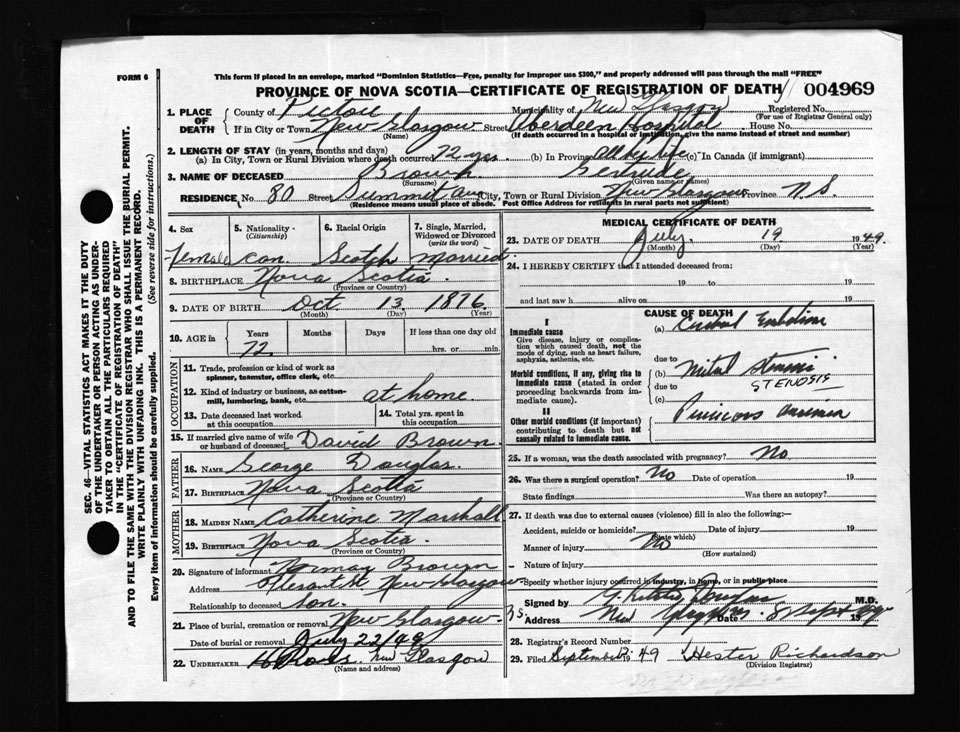 FORM 6
This form if placed in an envelope, marked "Dominion Statistics—Free, penalty for improper use $300," and properly addressed will pass through the mail "FREE"
PROVINCE OF NOVA SCOTIA—CERTIFICATE OF REGISTRATION OF DEATH 004969
1. PLACE OF DEATH
County of Pictou Municipality of New Glasgow Registered No.
(For use of Registrar General only)
If in City or Town New Glasgow Street Aberdeen Hospital House No.
(Name) (If death occurred in a hospital or institution, give the name instead of street and number)
2. LENGTH OF STAY (in years, months and days)
(a) In City, Town or Rural Division where death occurred 72 yrs. (b) In Province All by life (c) In Canada (if immigrant)
3. NAME OF DECEASED Brown Gertrude
(Surname) (Given name or names)
RESIDENCE No. 80 Street Summit Ave City, Town or Rural Division New Glasgow Province N.S.
(Residence means usual place of abode. Post Office Address for residents in rural parts not sufficient)
4. Sex Female
5. Nationality (Citizenship) Can.
6. Racial Origin Scotch
7. Single, Married, Widowed or Divorced (write the word) Married
8. BIRTHPLACE Nova Scotia
(Province or Country)
9. DATE OF BIRTH Oct. 13 1876
(Month) (Day) (Year)
10. AGE in
Years Months Days If less than one day old
72 hrs. or min.
OCCUPATION
11. Trade, profession or kind of work as spinner, teamster, office clerk, etc.
12. Kind of industry or business, as cotton-mill, lumbering, bank, etc. at home
13. Date deceased last worked at this occupation
14. Total yrs. spent in this occupation
15. If married give name of wife or husband of deceased David Brown
FATHER
16. NAME George Douglas
17. BIRTHPLACE Nova Scotia
(Province or Country)
MOTHER
18. MAIDEN NAME Catherine Marshall
19. BIRTHPLACE Nova Scotia
(Province or Country)
20. Signature of informant Brown
Address New Glasgow
Relationship to deceased son.
21. Place of burial, cremation or removal New Glasgow
Date of burial or removal July 22/49
22. UNDERTAKER New Glasgow
(Name and address)
MEDICAL CERTIFICATE OF DEATH
23. DATE OF DEATH July 19 1949
(Month) (Day) (Year)
24. I HEREBY CERTIFY that I attended deceased from:
19 to 19
and last saw h alive on 19
CAUSE OF DEATH
I
Immediate cause
Give disease, injury or complication which caused death, not the mode of dying, such as heart failure, asphyxia, asthenia, etc.
(a) Cerebral Embolism
due to
Morbid conditions, if any, giving rise to immediate cause (stated in order proceeding backwards from immediate cause).
(b) Mitral Stenosis
due to STENOSIS
(c)
II
Other morbid conditions (if important) contributing to death but not causally related to immediate cause.
Pernicious Anaemia
25. If a woman, was the death associated with pregnancy? No.
26. Was there a surgical operation? No Date of operation 19
State findings Was there an autopsy?
27. If death was due to external causes (violence) fill in also the following:—
Accident, suicide or homicide? Date of injury 19
(State which)
Manner of injury No
(How sustained)
Nature of injury
Specify whether injury occurred in industry, in home, or in public place
Signed by Douglas M.D.
Address New Glasgow N.S. Date 8 Sept 19 49
28. Registrar's Record Number
29. Filed September 1949 Hester Richardson
(Division Registrar)
SEC. 46—VITAL STATISTICS ACT MAKES IT THE DUTY
OF THE UNDERTAKER OR PERSON ACTING AS UNDER-
TAKER TO OBTAIN ALL THE PARTICULARS REQUIRED
IN THE "CERTIFICATE OF REGISTRATION OF DEATH"
AND TO FILE THE SAME WITH THE DIVISION REGISTRAR WHO SHALL ISSUE THE BURIAL PERMIT.
WRITE PLAINLY WITH UNFADING INK. THIS IS A PERMANENT RECORD.
Every item of information should be carefully supplied. (See reverse side for instructions.)